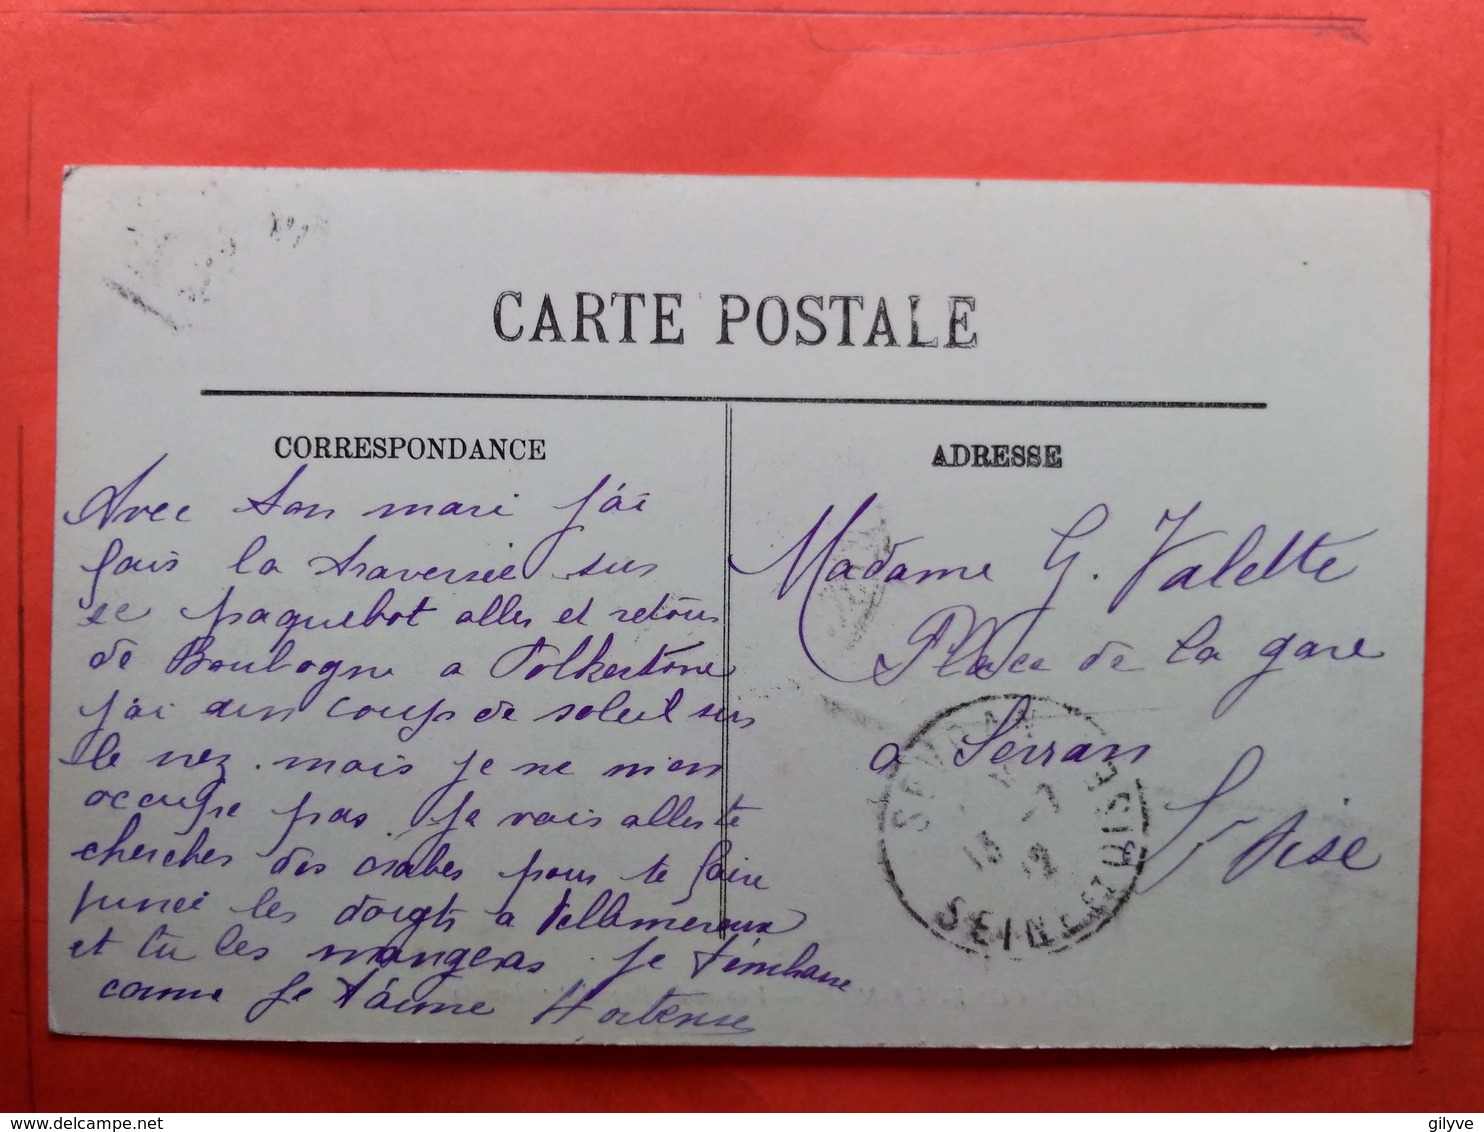 CARTE POSTALE
CORRESPONDANCE
Avec ton mari j'ai
fais la traversée sur
ce paquebot aller et retour
de Boulogne a Folkestone
j'ai un coup de soleil sur
le nez. mais je ne m'en
occupe pas. je vais aller te
chercher des crabes pour te faire
pincé les doigts a Villimereux
et tu les mangeras. je t'embrasse
comme je t'aime Hortense
ADRESSE
Madame G. Valette
Place de la gare
a Sevran
S et Oise
SEVRAN
13 -7
12
SEINE ET OISE
gilyve